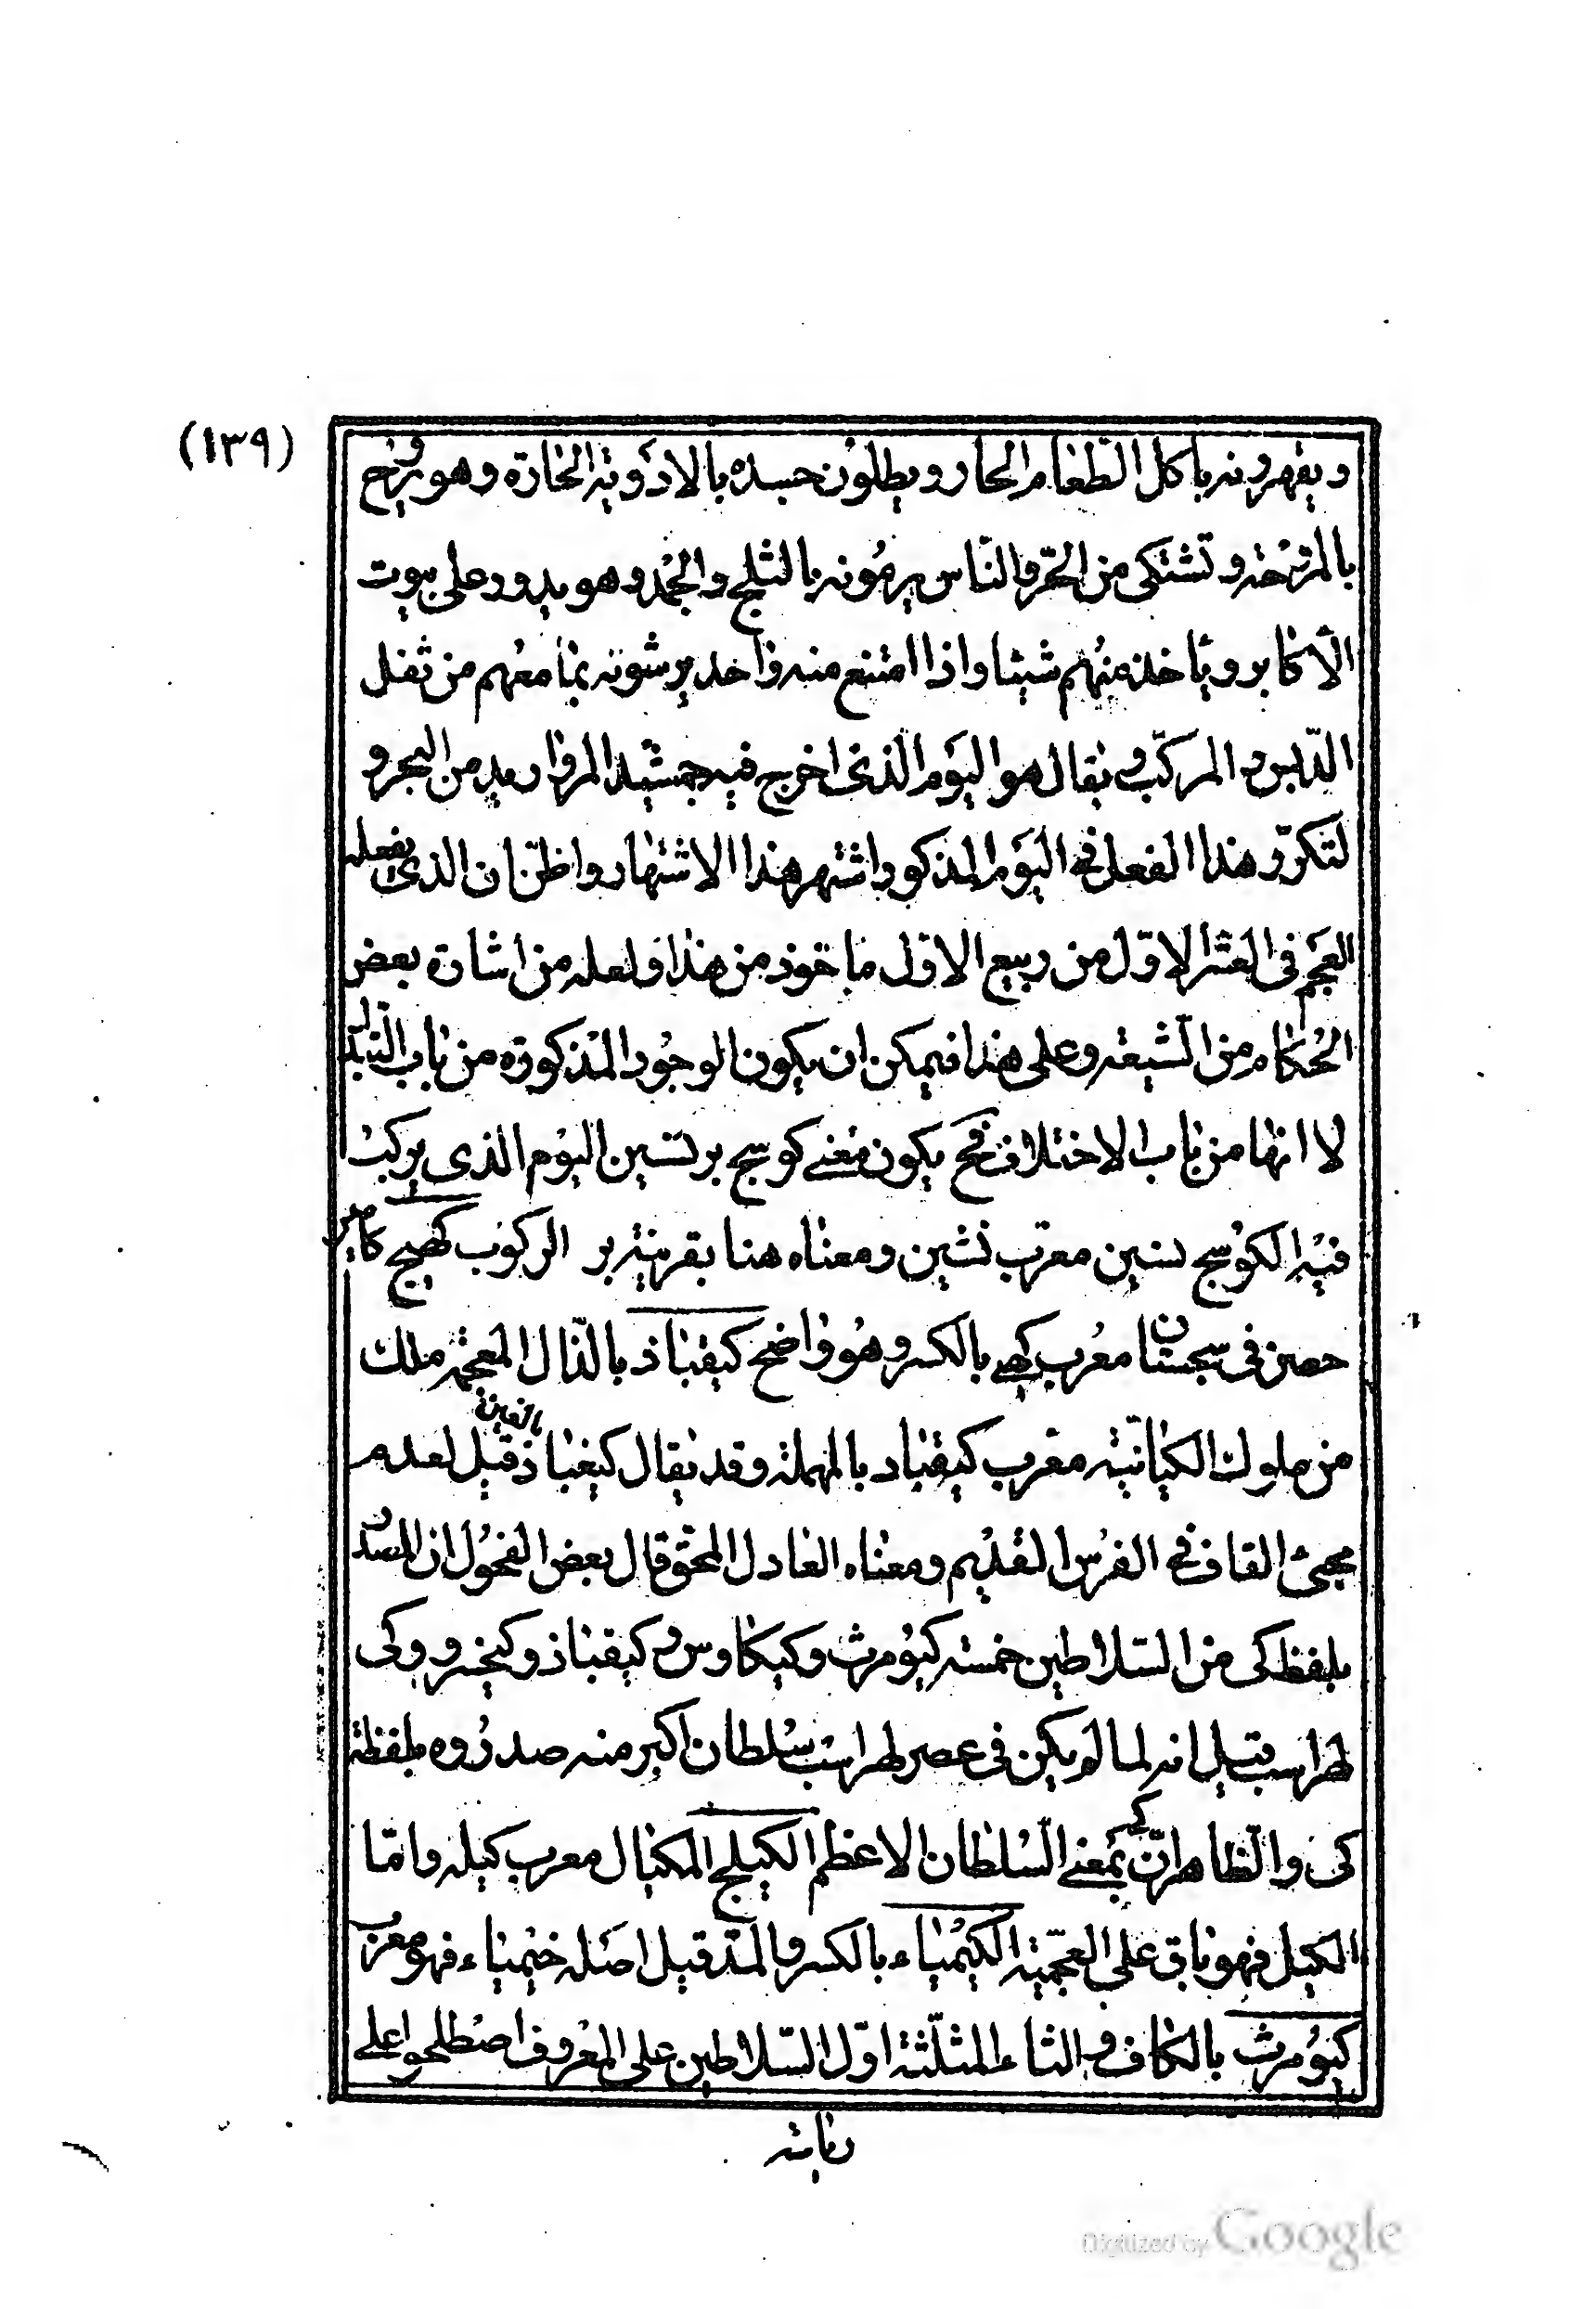 (١٣٩)
ويقهرونه باكل الطعام الحار ويطلون جسده بالادوية الحارة وهو يروّح
بالمروحة وتشتكى من الحرّ والنّاس يرمونه بالثلج والجمد وهو يدور على بيوت
الاكابر وياخذ منهم شيئا واذا امتنع منه واحد يرشونه بما معهم من ثفل
الدّبس والمركّب ويقال هو اليوم الّذى اخرج فيه جمشيد المرواريد من البحر و
لتكرّر هذا الفعل فى اليوم المذكور اشتهر هذا الاشتهار واظنّ ان الذى يفعله
العجم فى العشر الاوّل من ربيع الاوّل ماخوذ من هذا ولعله من اشارة بعض
الحكام من الشيعة وعلى هذا فيمكن ان يكون الوجوه المذكورة من باب
لا انها من باب الاختلاف فح يكون معنى كوسج برنسين اليوم الذى يركب
فيه الكوسج نسين معرّب نشين ومعناه هنا بقرينة بر الركوب كهيج كامير
حصن فى سجستان معرب كهى بالكسر وهو واضح كيقباذ بالذّال المعجمة ملك
من ملوك الكيانيّة معرب كيقباد بالمهملة وقد يقال كيغباذ بالغين قيل لعدم
مجئ القاف فى الفرس القديم ومعناه العادل المحق قال بعض الفحول ان المصدر
بلفظ كى من السّلاطين خمسة كيومرث وكيكاوس وكيقباذ وكيخسرو وكى
لهراسب قيل انه لما لم يكن فى عصر لهراسب سلطان اكبر منه صدروه بلفظة
كى والظاهر انّ كى بمعنى السّلطان الاعظم الكيلج المكيال معرب كيله وامّا
الكيل فهو باق على العجميّة الكيمياء بالكسر والمدّ قيل اصله خيمياء فهو معرب
كيومرث بالكاف والثاء المثلّثة اوّل السّلاطين على المعروف اصطلحوا على
Digitized by Google